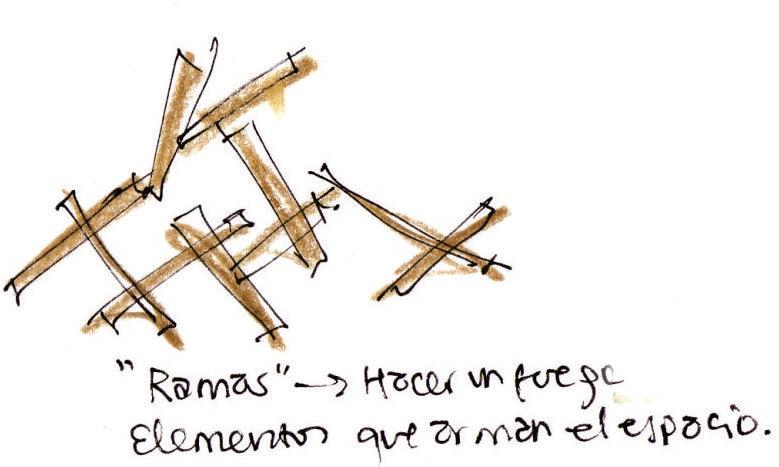 "Ramas" → Hacer un fuego
Elementos que arman el espacio.